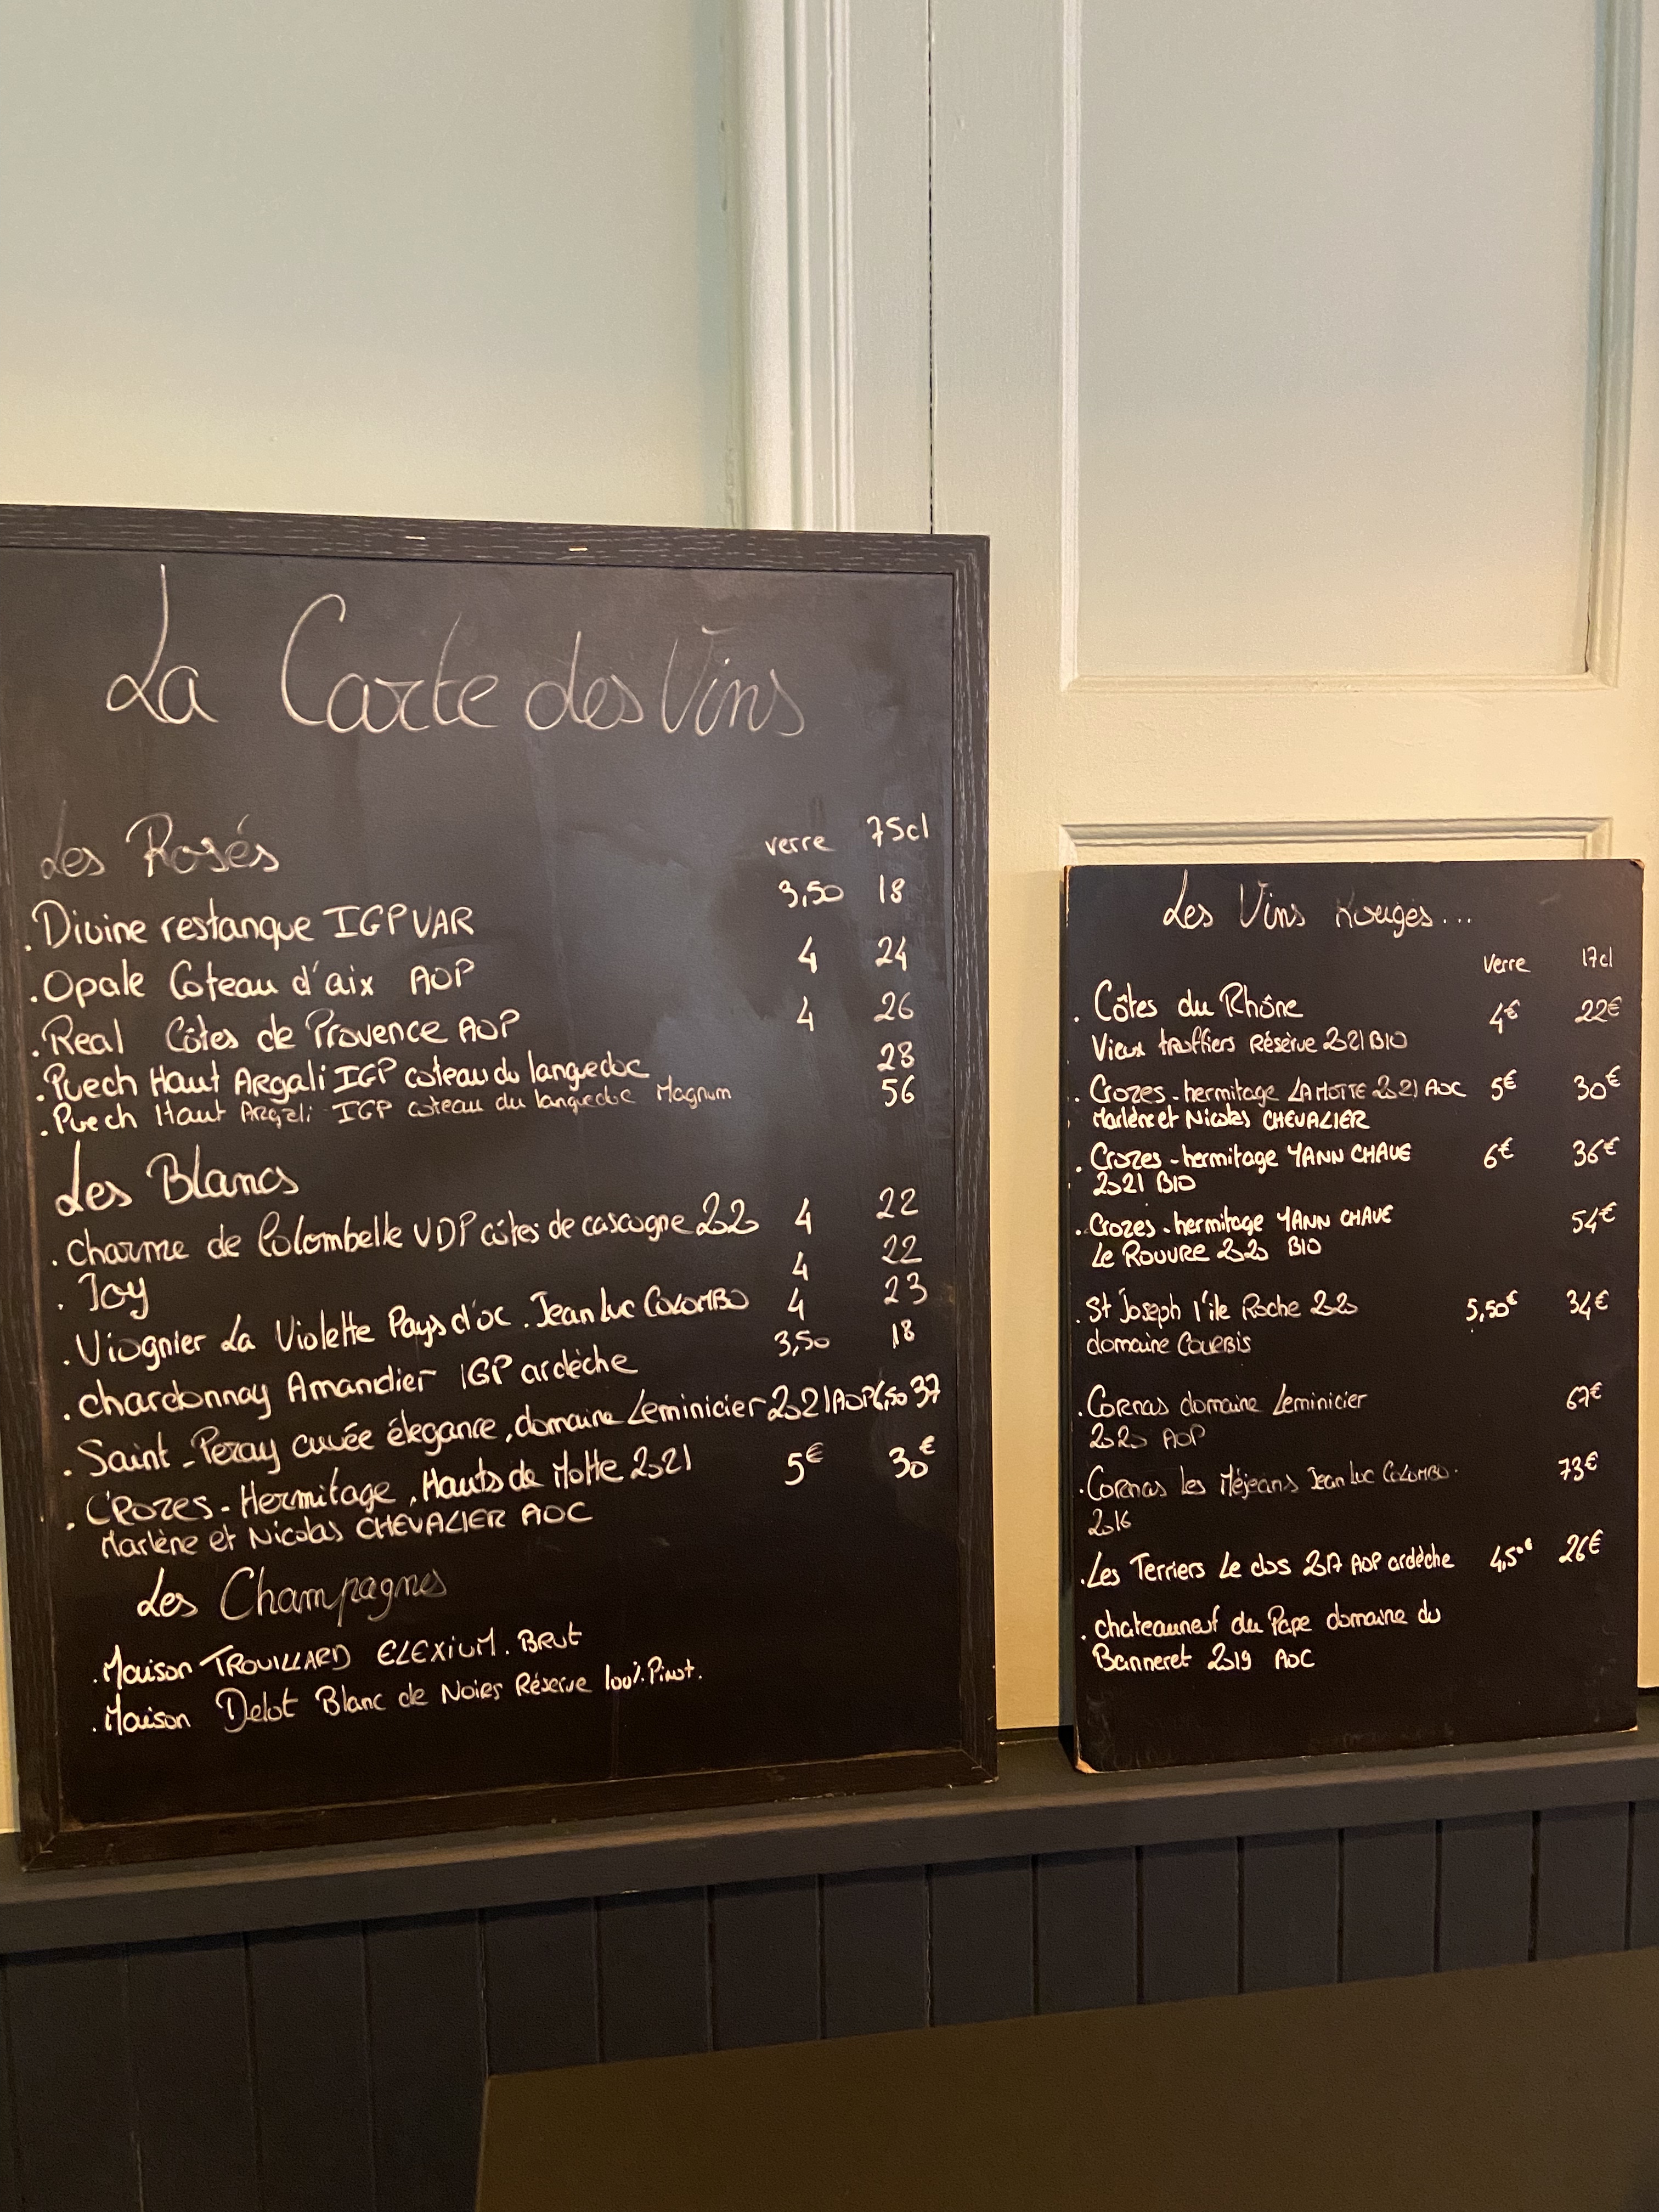 La Carte des Vins
Les Rosés verre 75cl
. Divine restanque IGP VAR 3,50 18
. Opale Coteau d'aix AOP 4 24
. Real Côtes de Provence AOP 4 26
. Puech Haut Argali IGP coteau du languedoc 28
. Puech Haut Argali IGP coteau du languedoc Magnum 56
Les Blancs
. Charme de Colombelle VDP côtes de cascogne 2020 4 22
. Joy 4 22
. Viognier La Violette Pays d'oc . Jean Luc COLOMBO 4 23
. chardonnay Amandier IGP ardèche 3,50 18
. Saint-Peray cuvée élegance, domaine Leminicier 2021 AOP 6,50 37
. CROZES-Hermitage, Hauts de Motte 2021 5€ 30€
Marlène et Nicolas CHEVALIER AOC
Les Champagnes
. Maison TROUILLARD ELEXIUM. BRUT
. Maison Delot Blanc de Noirs Réserve 100% Pinot.
Les Vins Rouges...
Verre 17cl
. Côtes du Rhône 4€ 22€
Vieux truffiers Réserve 2021 BIO
. Crozes-hermitage LA MOTTE 2021 AOC 5€ 30€
Marlène et Nicolas CHEVALIER
. Crozes-hermitage YANN CHAVE 6€ 36€
2021 BIO
. Crozes-hermitage YANN CHAVE 54€
Le ROUVRE 2020 BIO
. St Joseph l'ile Roche 2020 5,50€ 34€
domaine COURBIS
. Cornas domaine Leminicier 67€
2020 AOP
. Cornas les Méjeans Jean Luc COLOMBO. 73€
2016
. Les Terriers Le clos 2017 AOP ardèche 4,50€ 26€
. chateauneuf du Pape domaine du
Banneret 2019 AOC